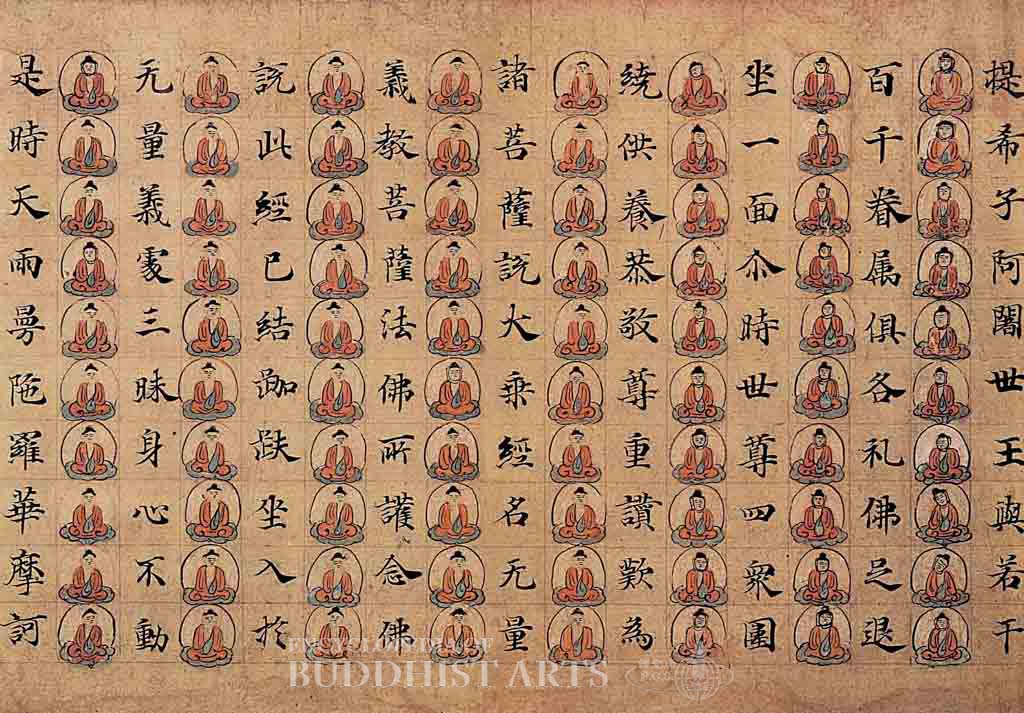 提希子阿闍世王與若干
百千眷属俱各礼佛足退
坐一面尒時世尊四衆圍
繞供養恭敬尊重讃歎為
諸菩薩説大乗經名无量
義教菩薩法佛所護念佛
説此經已結跏趺坐入於
无量義處三昧身心不動
是時天雨曼陁羅華摩訶
ENCYCLOPEDIA OF
BUDDHIST ARTS